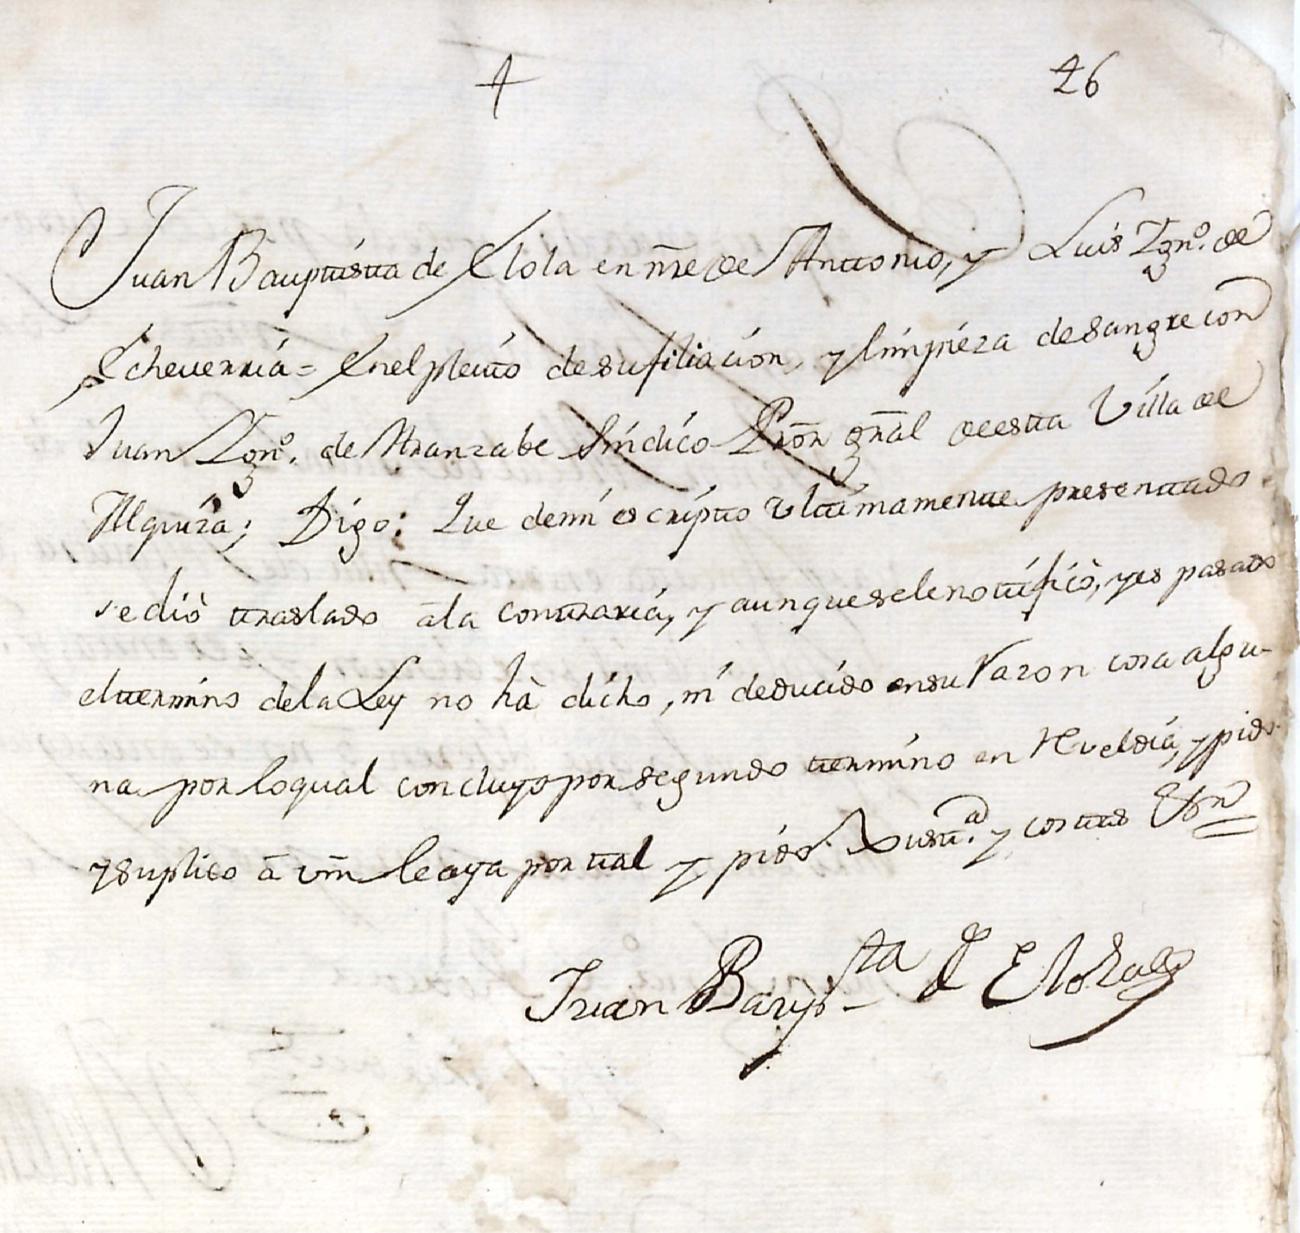 46
Juan Bauptista de Elola en nr̃e de Antonio, y Luis Ygnº. de
Echeverria = En el pleito de su filiacion, y limpieza de sangre con
Juan Ygnº. de Aranzabe Sindico Prõr gr̃al de esta Villa de
Alquiza; Digo: Que de mi escripto ultimamente presentado
se diò traslado â la contraria, y aunque se le notificò, y es pasado
el termino de la Ley no hà dicho, ni deducido en su razon cosa algu-
na por lo qual concluyo por segundo termino en Rveldia, y pido
y suplico â vm̃ le aya por tal y pido Justª. y costas &ª
Juan Baupᵗᵃ de Elola